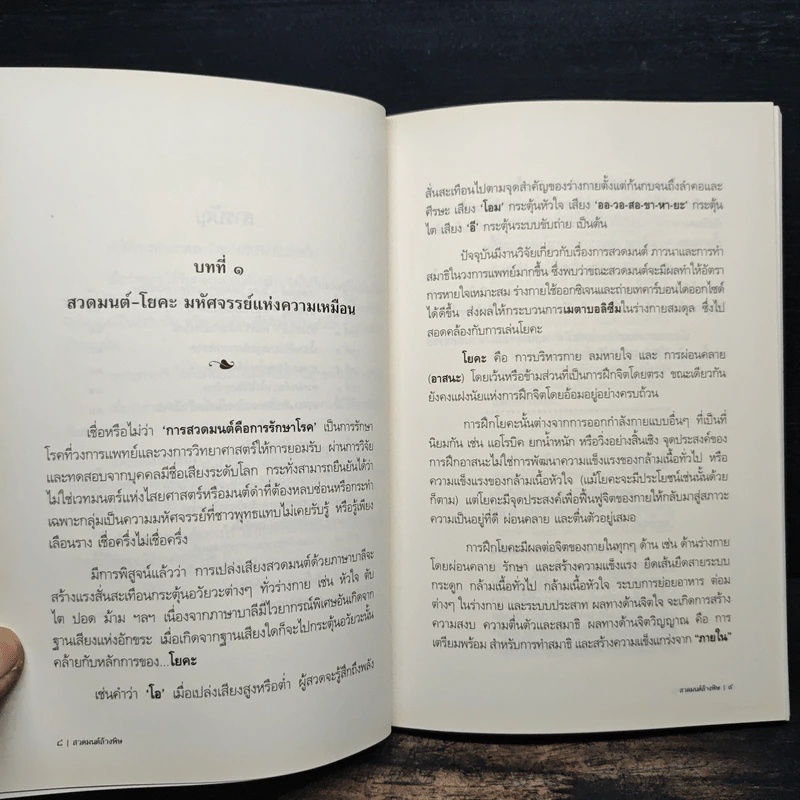 บทที่ ๑
สวดมนต์-โยคะ มหัศจรรย์แห่งความเหมือน
เชื่อหรือไม่ว่า ‘การสวดมนต์คือการรักษาโรค’ เป็นการรักษา
โรคที่วงการแพทย์และวงการวิทยาศาสตร์ให้การยอมรับ ผ่านการวิจัย
และทดสอบจากบุคคลมีชื่อเสียงระดับโลก กระทั่งสามารถยืนยันได้ว่า
ไม่ใช่เวทมนตร์แห่งไสยศาสตร์หรือมนต์ดำที่ต้องหลบซ่อนหรือกระทำ
เฉพาะกลุ่มเป็นความมหัศจรรย์ที่ชาวพุทธแทบไม่เคยรับรู้ หรือรู้เพียง
เลือนราง เชื่อครึ่งไม่เชื่อครึ่ง
มีการพิสูจน์แล้วว่า การเปล่งเสียงสวดมนต์ด้วยภาษาบาลีจะ
สร้างแรงสั่นสะเทือนกระตุ้นอวัยวะต่างๆ ทั่วร่างกาย เช่น หัวใจ ตับ
ไต ปอด ม้าม ฯลฯ เนื่องจากภาษาบาลีมีไวยากรณ์พิเศษอันเกิดจาก
ฐานเสียงแห่งอักขระ เมื่อเกิดจากฐานเสียงใดก็จะไปกระตุ้นอวัยวะนั้น
คล้ายกับหลักการของ...โยคะ
เช่นคำว่า ‘โอ’ เมื่อเปล่งเสียงสูงหรือต่ำ ผู้สวดจะรู้สึกถึงพลัง
๘ | สวดมนต์ล้างพิษ
สั่นสะเทือนไปตามจุดสำคัญของร่างกายตั้งแต่ก้นกบจนถึงลำคอและ
ศีรษะ เสียง ‘โอม’ กระตุ้นหัวใจ เสียง ‘ออ-วอ-สอ-ขา-หา-ยะ’ กระตุ้น
ไต เสียง ‘อี’ กระตุ้นระบบขับถ่าย เป็นต้น
ปัจจุบันมีงานวิจัยเกี่ยวกับเรื่องการสวดมนต์ ภาวนาและการทำ
สมาธิในวงการแพทย์มากขึ้น ซึ่งพบว่าขณะสวดมนต์จะมีผลทำให้อัตรา
การหายใจเหมาะสม ร่างกายใช้ออกซิเจนและถ่ายเทคาร์บอนไดออกไซด์
ได้ดีขึ้น ส่งผลให้กระบวนการเมตาบอลิซึมในร่างกายสมดุล ซึ่งไป
สอดคล้องกับการเล่นโยคะ
โยคะ คือ การบริหารกาย ลมหายใจ และ การผ่อนคลาย
(อาสนะ) โดยเว้นหรือข้ามส่วนที่เป็นการฝึกจิตโดยตรง ขณะเดียวกัน
ยังคงแฝงนัยแห่งการฝึกจิตโดยอ้อมอยู่อย่างครบถ้วน
การฝึกโยคะนั้นต่างจากการออกกำลังกายแบบอื่นๆ ที่เป็นที่
นิยมกัน เช่น แอโรบิค ยกน้ำหนัก หรือวิ่งอย่างสิ้นเชิง จุดประสงค์ของ
การฝึกอาสนะไม่ใช่การพัฒนาความแข็งแรงของกล้ามเนื้อทั่วไป หรือ
ความแข็งแรงของกล้ามเนื้อหัวใจ (แม้โยคะจะมีประโยชน์เช่นนั้นด้วย
ก็ตาม) แต่โยคะมีจุดประสงค์เพื่อฟื้นฟูจิตของกายให้กลับมาสู่สภาวะ
ความเป็นอยู่ที่ดี ผ่อนคลาย และตื่นตัวอยู่เสมอ
การฝึกโยคะมีผลต่อจิตของกายในทุกๆ ด้าน เช่น ด้านร่างกาย
โดยผ่อนคลาย รักษา และสร้างความแข็งแรง ยืดเส้นยืดสายระบบ
กระดูก กล้ามเนื้อทั่วไป กล้ามเนื้อหัวใจ ระบบการย่อยอาหาร ต่อม
ต่างๆ ในร่างกาย และระบบประสาท ผลทางด้านจิตใจ จะเกิดการสร้าง
ความสงบ ความตื่นตัวและสมาธิ ผลทางด้านจิตวิญญาณ คือ การ
เตรียมพร้อม สำหรับการทำสมาธิ และสร้างความแข็งแกร่งจาก “ภายใน”
สวดมนต์ล้างพิษ | ๙